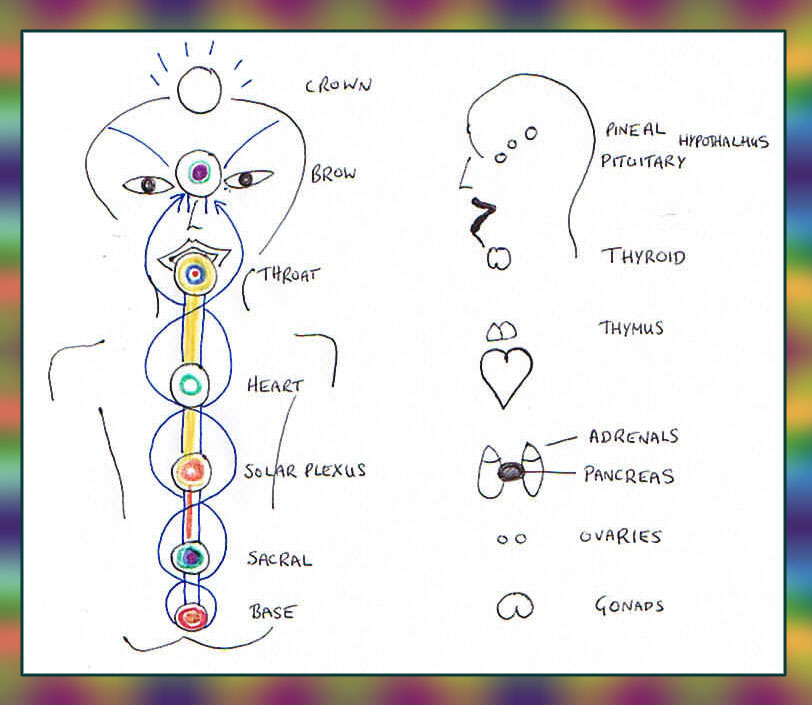 CROWN
BROW
THROAT
HEART
SOLAR PLEXUS
SACRAL
BASE
PINEAL HYPOTHALMUS
PITUITARY
THYROID
THYMUS
ADRENALS
PANCREAS
OVARIES
GONADS